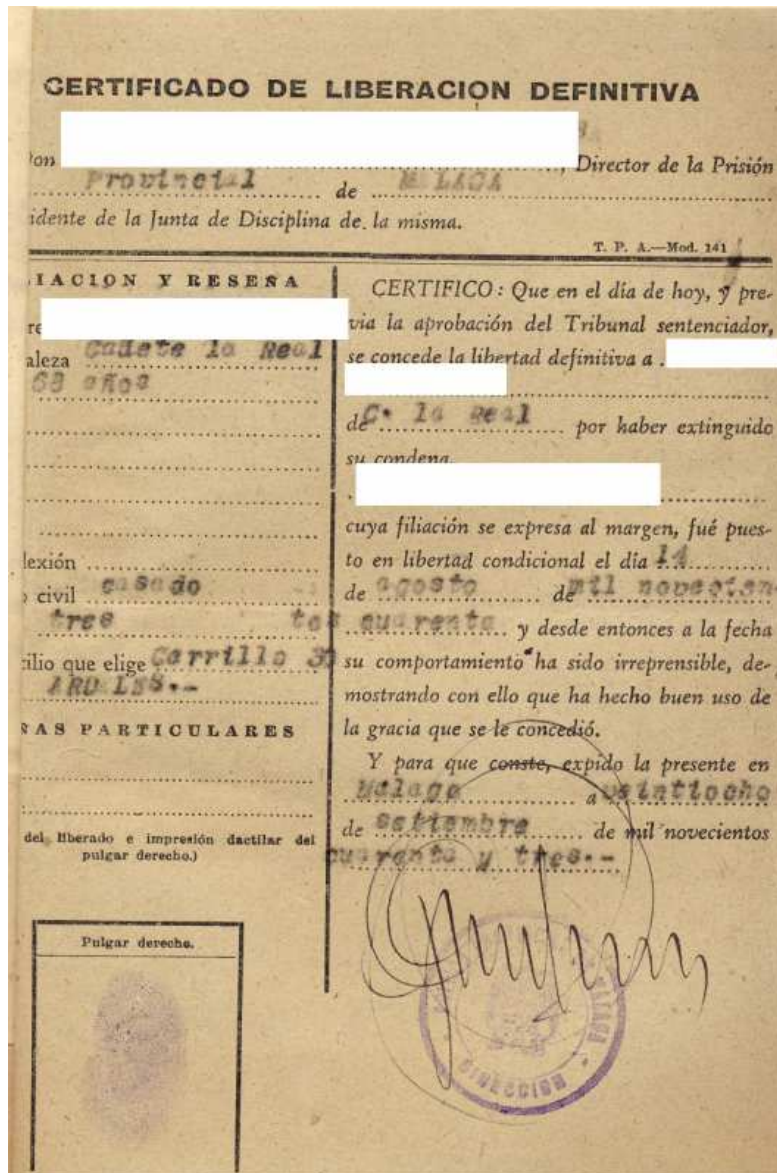 CERTIFICADO DE LIBERACION DEFINITIVA
on
, Director de la Prisión
Provincial de MALAGA
idente de la Junta de Disciplina de la misma.
T. P. A.—Mod. 141
IACION Y RESEÑA
re
aleza Cadete la Real
68 años
lexión
civil casado
tres
ilio que elige Carrillo 3
ARDALES.-
AS PARTICULARES
del liberado e impresión dactilar del
pulgar derecho.)
Pulgar derecho.
CERTIFICO: Que en el día de hoy, y pre-
via la aprobación del Tribunal sentenciador,
se concede la libertad definitiva a .
de C. la Real por haber extinguido
su condena.
cuya filiación se expresa al margen, fué pues-
to en libertad condicional el día 14
de agosto de mil novecien
tos cuarenta y desde entonces a la fecha
su comportamiento ha sido irreprensible, de-
mostrando con ello que ha hecho buen uso de
la gracia que se le concedió.
Y para que conste, expido la presente en
Málaga a veintiocho
de setiembre de mil novecientos
cuarenta y tres.-
DIRECCION